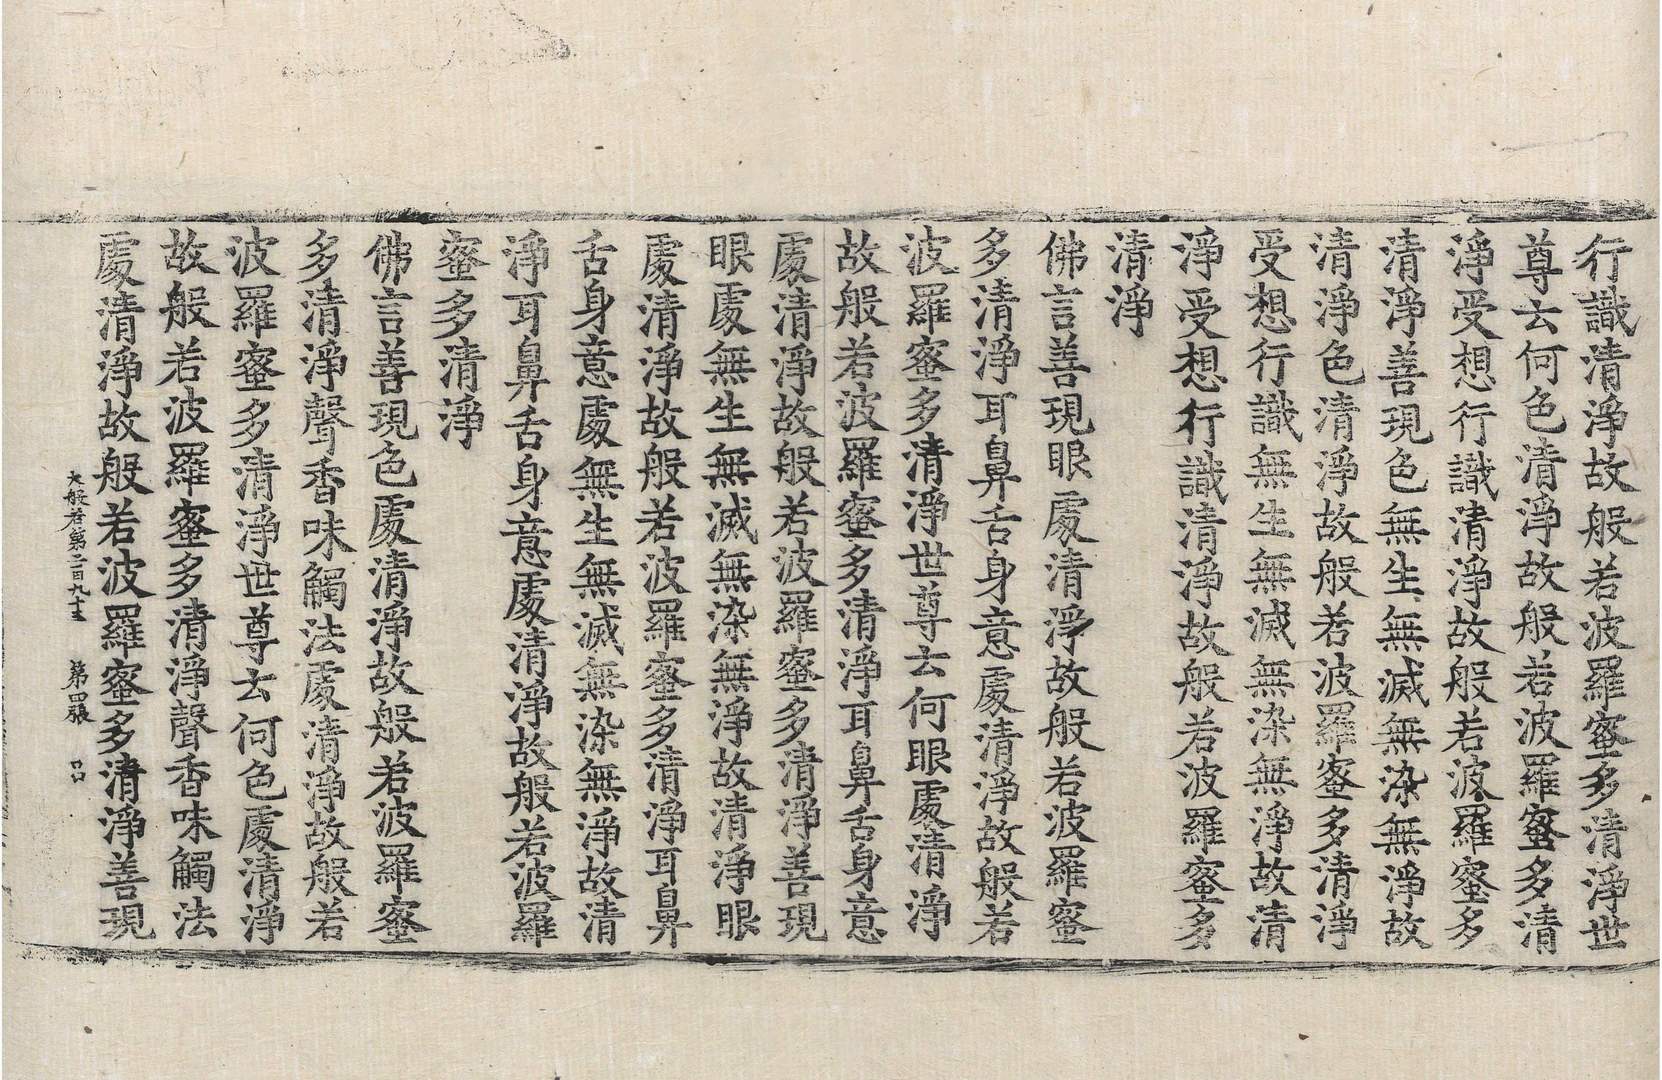 行識清淨故般若波羅蜜多清淨世
尊云何色清淨故般若波羅蜜多清
淨受想行識清淨故般若波羅蜜多
清淨善現色無生無滅無染無淨故
清淨色清淨故般若波羅蜜多清淨
受想行識無生無滅無染無淨故清
淨受想行識清淨故般若波羅蜜多
清淨
佛言善現眼處清淨故般若波羅蜜
多清淨耳鼻舌身意處清淨故般若
波羅蜜多清淨世尊云何眼處清淨
故般若波羅蜜多清淨耳鼻舌身意
處清淨故般若波羅蜜多清淨善現
眼處無生無滅無染無淨故清淨眼
處清淨故般若波羅蜜多清淨耳鼻
舌身意處無生無滅無染無淨故清
淨耳鼻舌身意處清淨故般若波羅
蜜多清淨
佛言善現色處清淨故般若波羅蜜
多清淨聲香味觸法處清淨故般若
波羅蜜多清淨世尊云何色處清淨
故般若波羅蜜多清淨聲香味觸法
處清淨故般若波羅蜜多清淨善現
大般若第二百九十 第四張